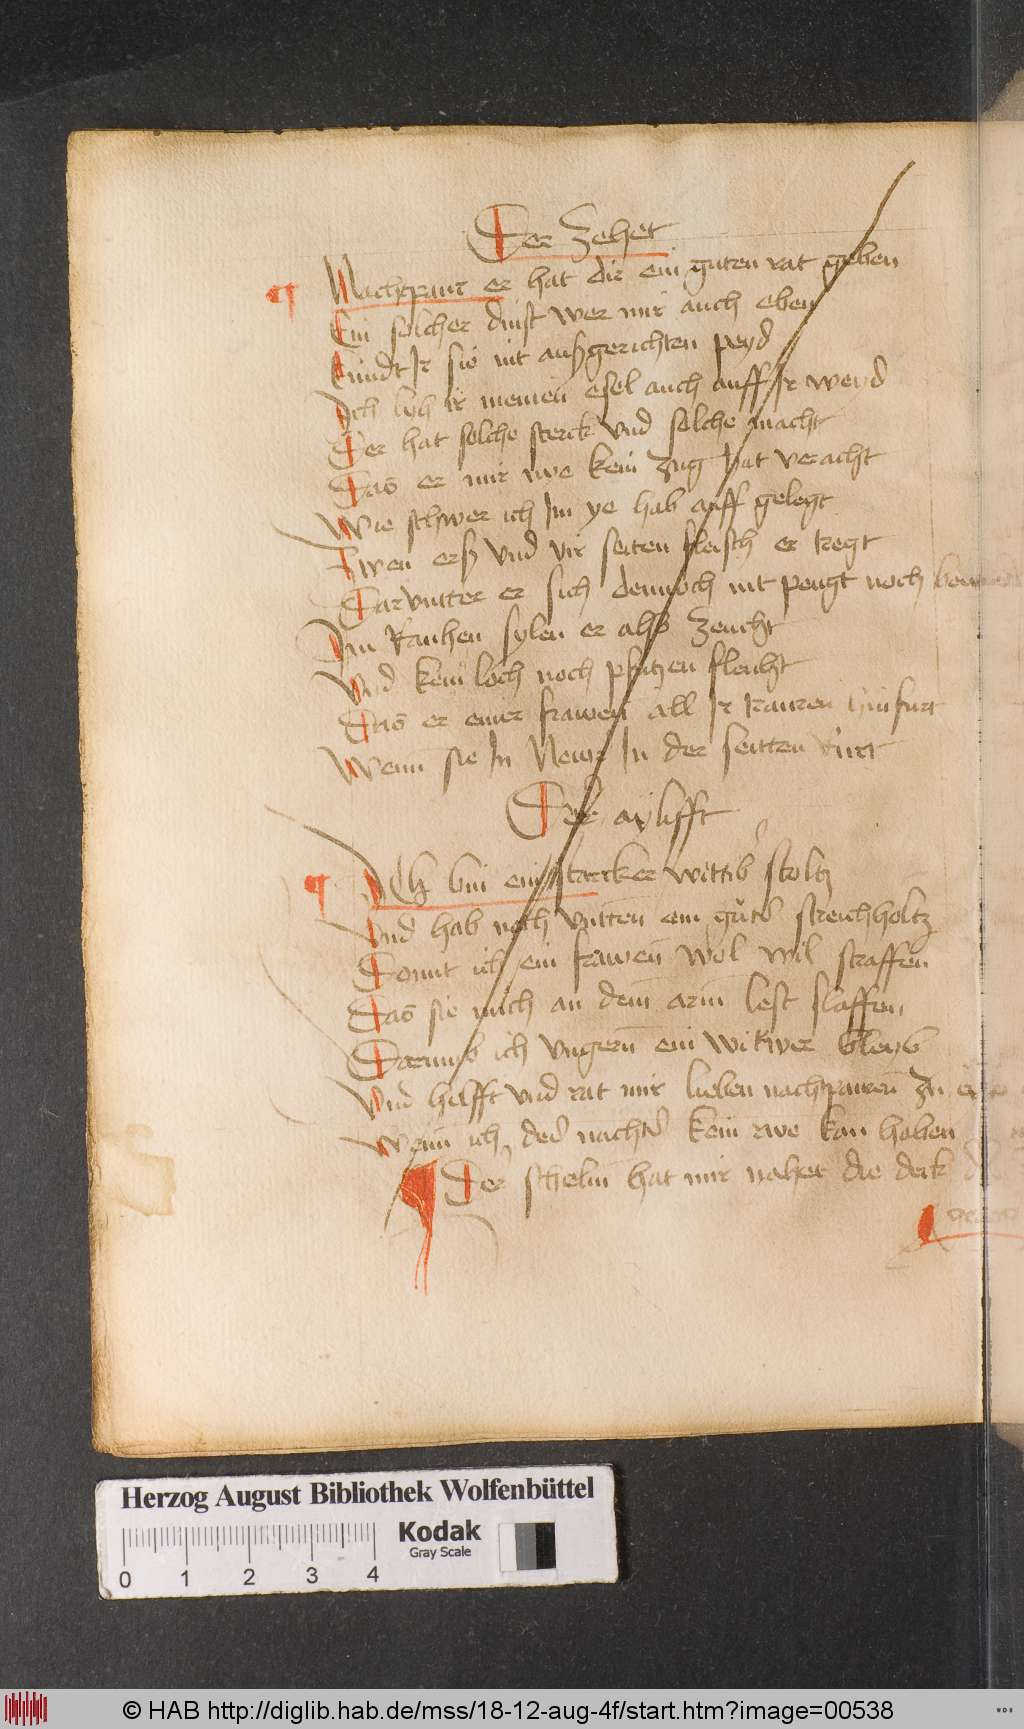 Der Zehet
Nachtpaur er hat dir ein guten rat geben
Ein solcher dinst wer mir auch eben
kündt Ir sie nit außgerichten peyd
Ich lyh ir meinen esel auch auff Ir weyd
Der hat solche sterck vnd solche macht
Das er mir nye kein zug hat veracht
Wie schwer ich Im ye hab auff gelegt
Zwen erß vnd vir seiten fleisch er tregt
Dar vntter er sich dennoch nit peugt noch
Im Rauhen sylen er also zeucht
Vnd kein loch noch pfutzen fleucht
Das er einer frawen all Ir trauren hinfurt
Wenn sie In Newr In der seitten rürt
Der aylifft
Ich bin ein starcker wittber stoltz
Vnd hab noch vntten ein gutes streichholtz
Domit ich ein frawen wol wil straffen
Das sie mich an dem arm lest slaffen
Darumb ich vngern ein witwer bleyb
Vnd helfft vnd rat mir lieben nachtpauren zu
Wenn ich des nachtes kein rwe kan haben
Der schelm hat mir nahet die deck
Herzog August Bibliothek Wolfenbüttel
Kodak
Gray Scale
0 1 2 3 4
© HAB http://diglib.hab.de/mss/18-12-aug-4f/start.htm?image=00538